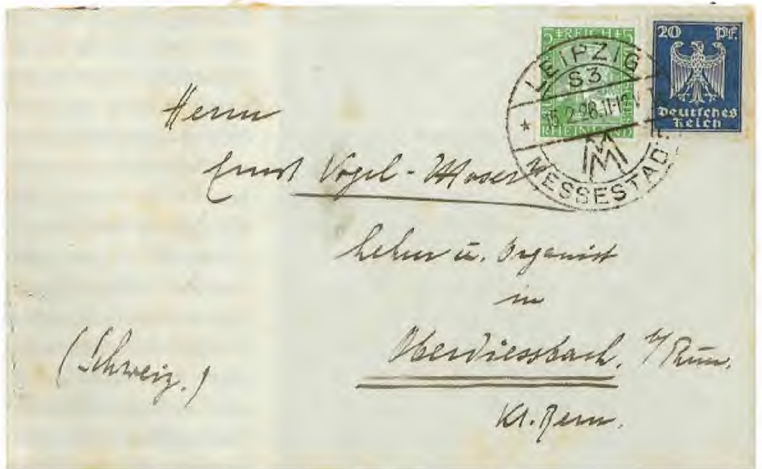 5 REICH 5
RHEINLAND
20 Pf.
Deutsches
Reich
LEIPZIG
S3
15.2.26.11-
MESSESTADT
Herrn
Ernst Vogel-Moser
Lehrer u. Organist
in
Oberdiessbach. b/Thun.
(Schweiz.)
Kt. Bern.